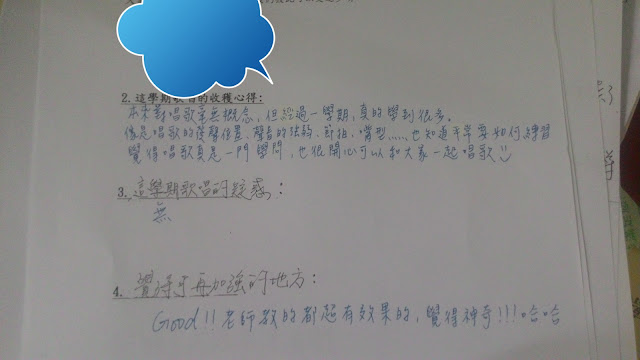 2. 這學期歌唱的收穫心得:
本來對唱歌毫無概念，但經過一學期，真的學到很多。
像是唱歌的發聲位置、聲音的法、節拍、嘴型……也知道平常要如何練習
覺得唱歌真是一門學問，也很開心可以和大家一起唱歌
3. 這學期歌唱的疑惑:
無
4. 覺得可再加強的地方:
Good!! 老師教的都超有效果的，覺得神奇!!! 哈哈